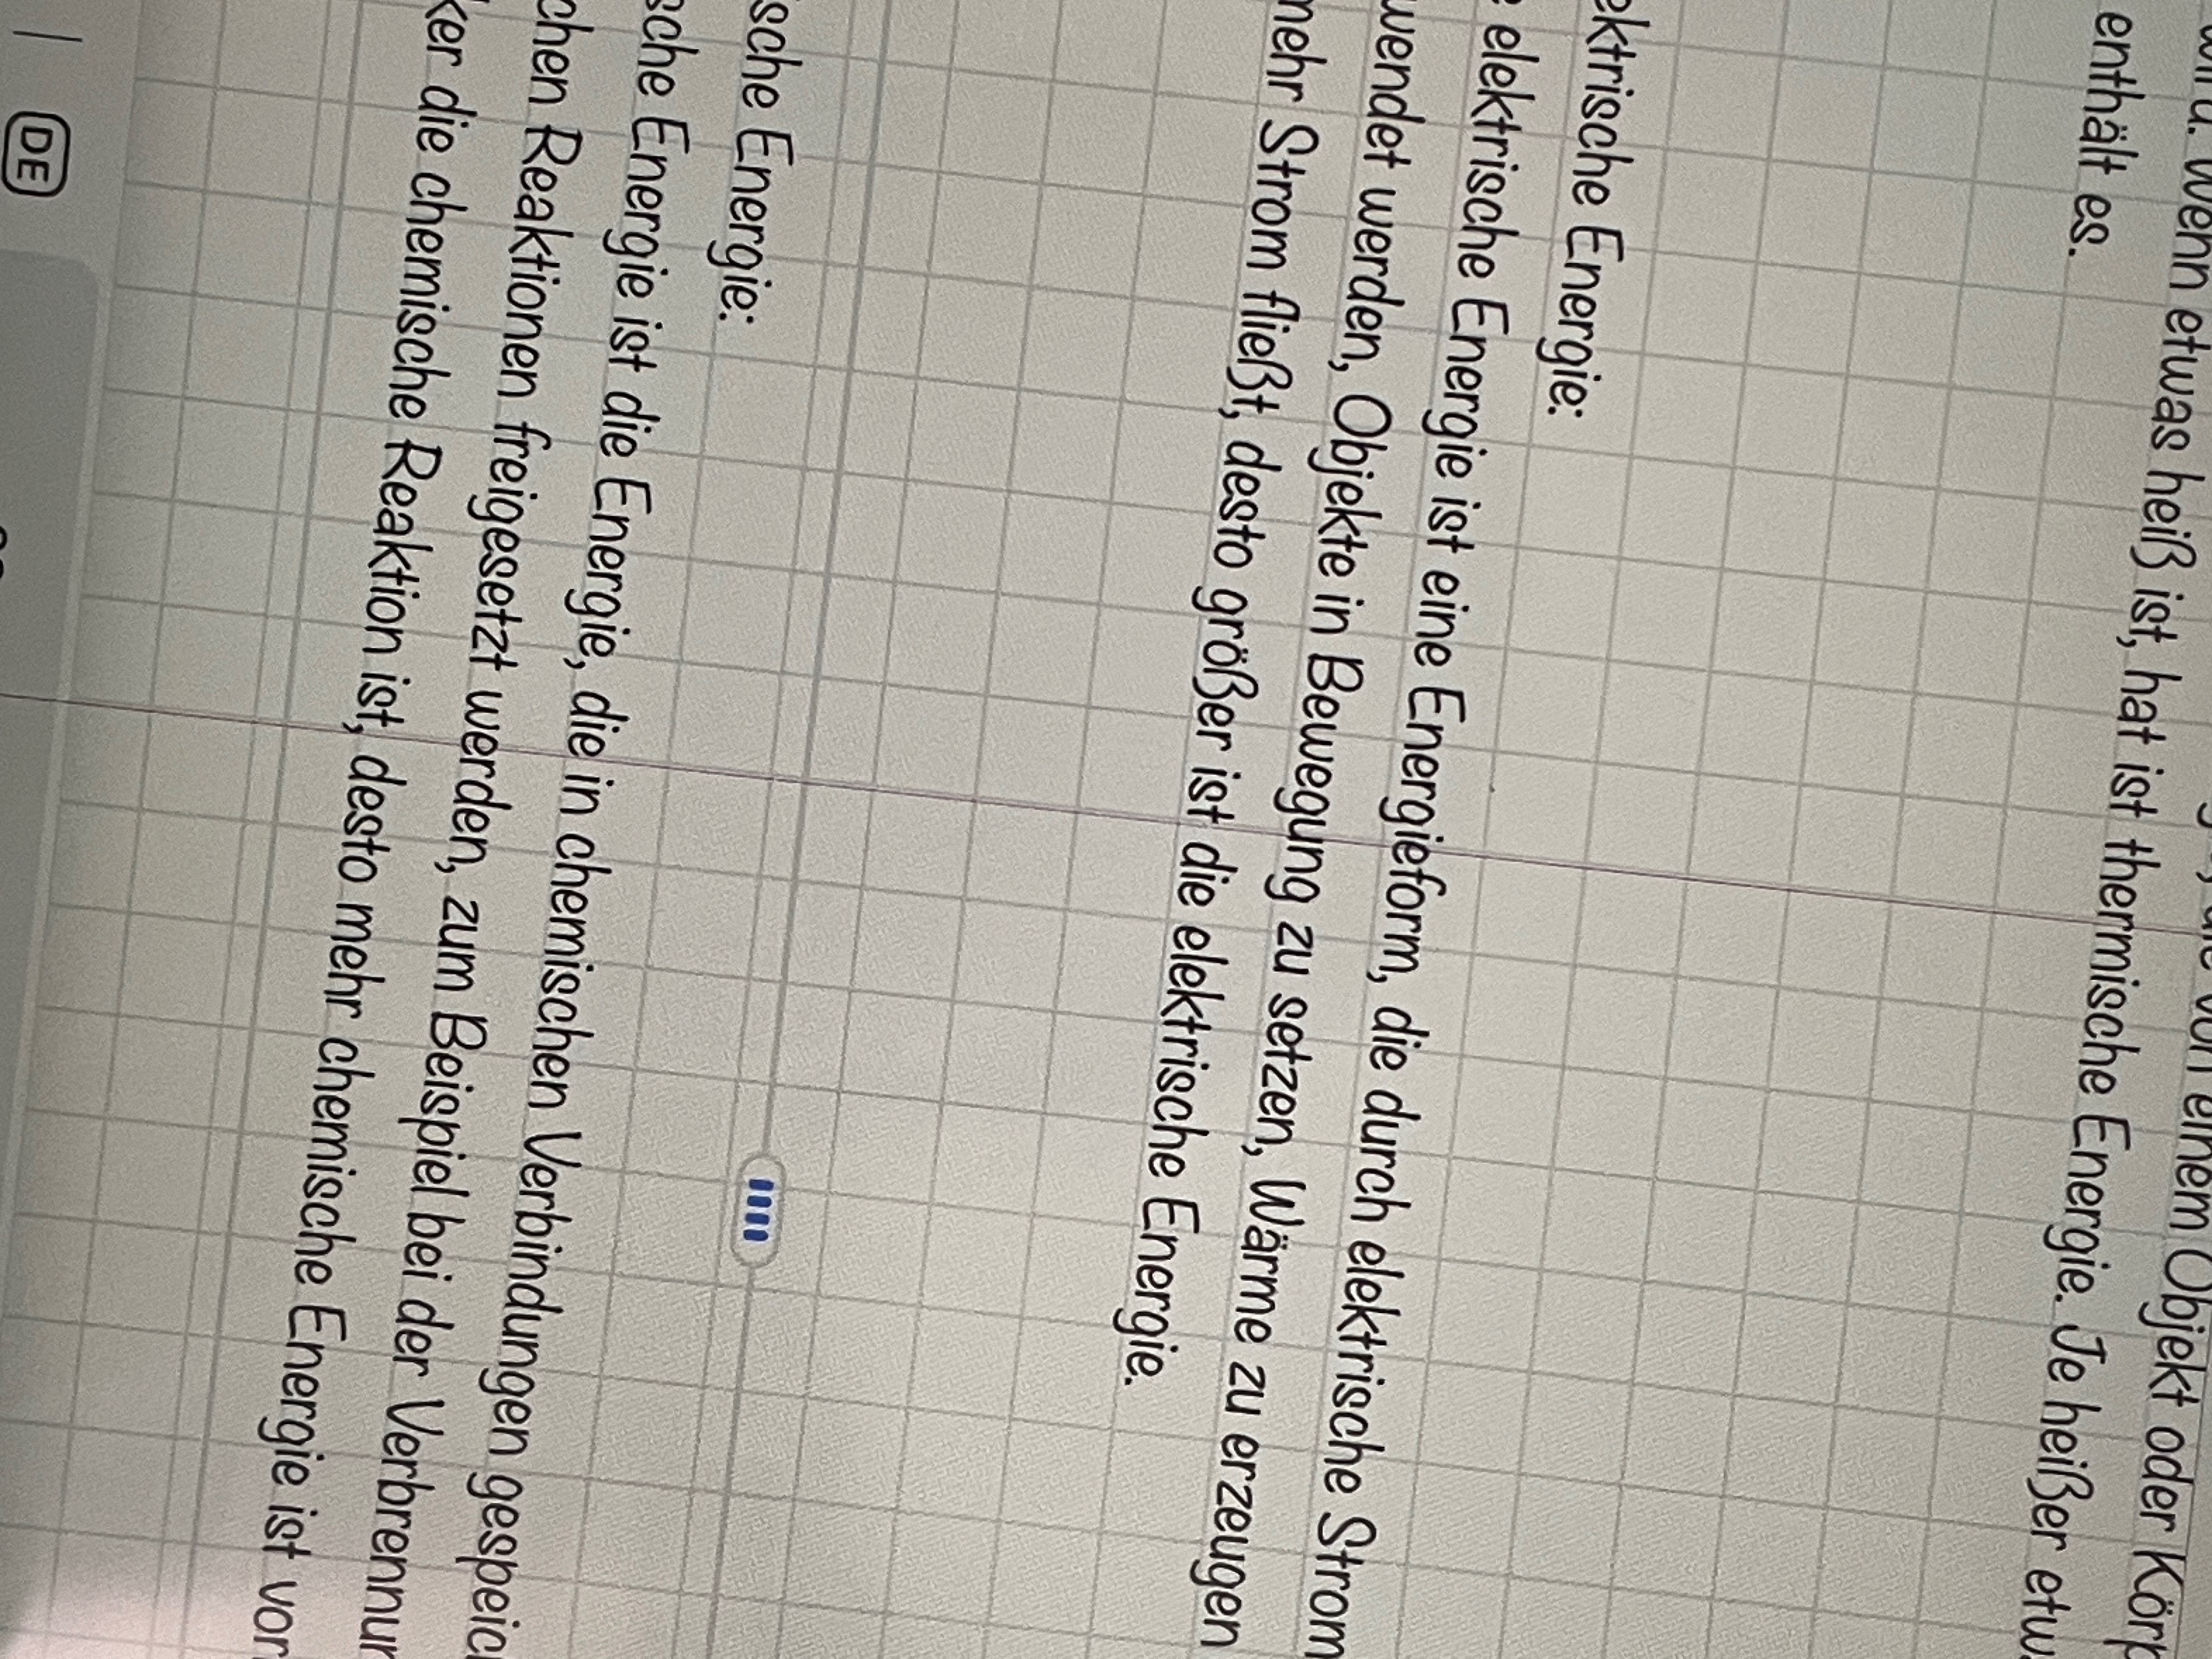 wenn etwas heiß ist, hat ist thermische Energie. Je heißer
enthält es.
elektrische Energie:
elektrische Energie ist eine Energieform, die durch elektrische Strom
wendet werden, Objekte in Bewegung zu setzen, Wärme zu erzeugen
mehr Strom fließt, desto größer ist die elektrische Energie.
sche Energie:
sche Energie ist die Energie, die in chemischen Verbindungen gespeic
chen Reaktionen freigesetzt werden, zum Beispiel bei der Verbrennun
ker die chemische Reaktion ist, desto mehr chemische Energie ist vor
DE